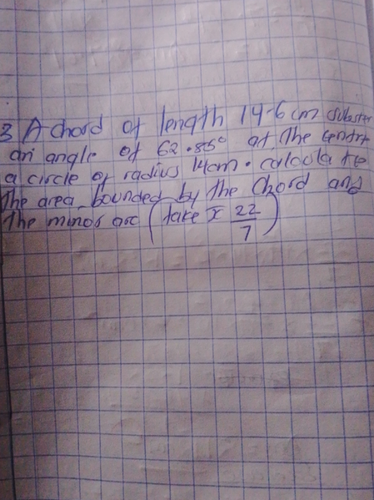 3 A chord of length 14.6cm substen
an angle of 62.86° at the centre
a circle of radius 14cm. calculate
The area bounded by the Chord and
The minor arc (take x 22/7)